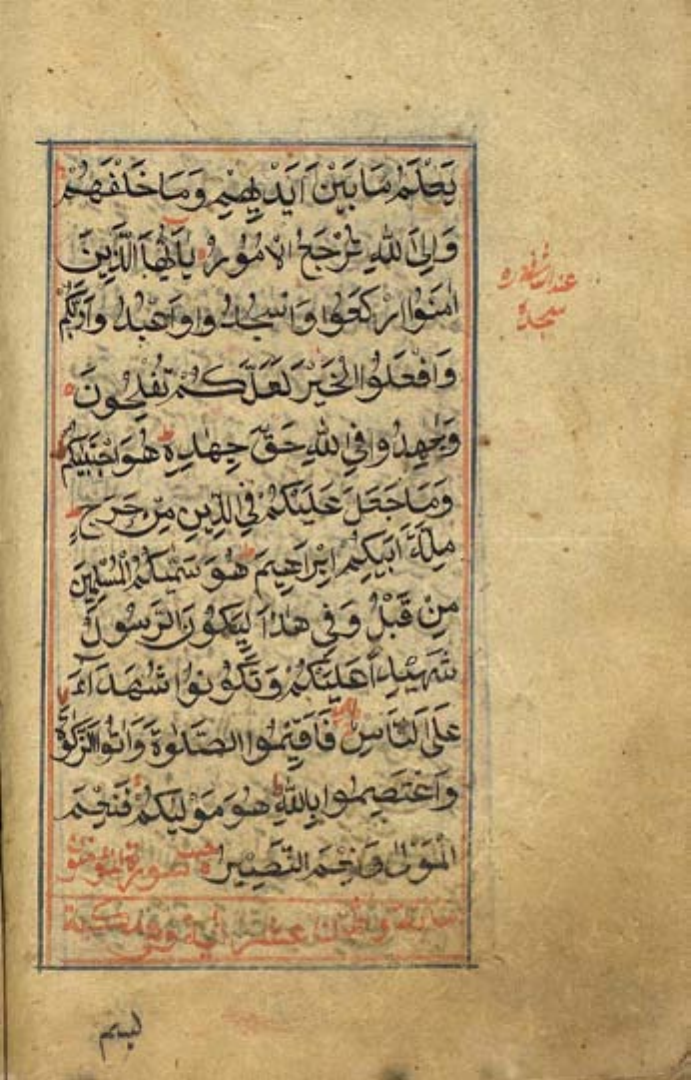 يَعْلَمُ مَا بَيْنَ اَيْدِيْهِمْ وَمَا خَلْفَهُمْ
وَاِلَى اللّٰهِ تُرْجَعُ الْاُمُوْرُ يٰاَيُّهَا الَّذِيْنَ
اٰمَنُوا ارْكَعُوْا وَاسْجُدُوْا وَاعْبُدُوْا رَبَّكُمْ
وَافْعَلُوا الْخَيْرَ لَعَلَّكُمْ تُفْلِحُوْنَ
وَجَاهِدُوْا فِي اللّٰهِ حَقَّ جِهَادِهٖ هُوَ اجْتَبٰيكُمْ
وَمَا جَعَلَ عَلَيْكُمْ فِي الدِّيْنِ مِنْ حَرَجٍ
مِلَّةَ اَبِيْكُمْ اِبْرَاهِيْمَ هُوَ سَمّٰيكُمُ الْمُسْلِمِيْنَ
مِنْ قَبْلُ وَفِيْ هٰذَا لِيَكُوْنَ الرَّسُوْلُ
شَهِيْدًا عَلَيْكُمْ وَتَكُوْنُوْا شُهَدَآءَ
عَلَى النَّاسِ فَاَقِيْمُوا الصَّلٰوةَ وَاٰتُوا الزَّكٰوةَ
وَاعْتَصِمُوْا بِاللّٰهِ هُوَ مَوْلٰيكُمْ فَنِعْمَ
الْمَوْلٰى وَنِعْمَ النَّصِيْرُ
سجدة